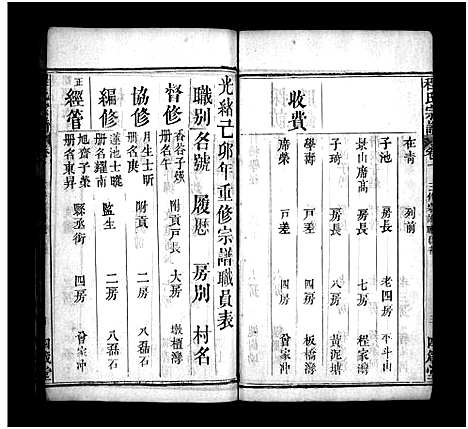 在青 列前
子池 房長 老四房 不斗山
景山席高 房長 七房 程家灣
子琦 房長 八房 黄泥塘
學書 戸差 四房 板橋灣
席榮 戸差 四房 曾家冲
收費
光緒己卯年重修宗譜職員表
職别 名號 履歷 房别 村名
督修 香谷子煐 附貢戸長 大房 墩檀灣
協修 月生士昕 册名庚 附貢 二房 八磊石
編修 蓮池士曉 册名耀南 監生 二房 八磊石
正經管 旭齋子榮 册名東昇 縣丞銜 四房 曾家冲